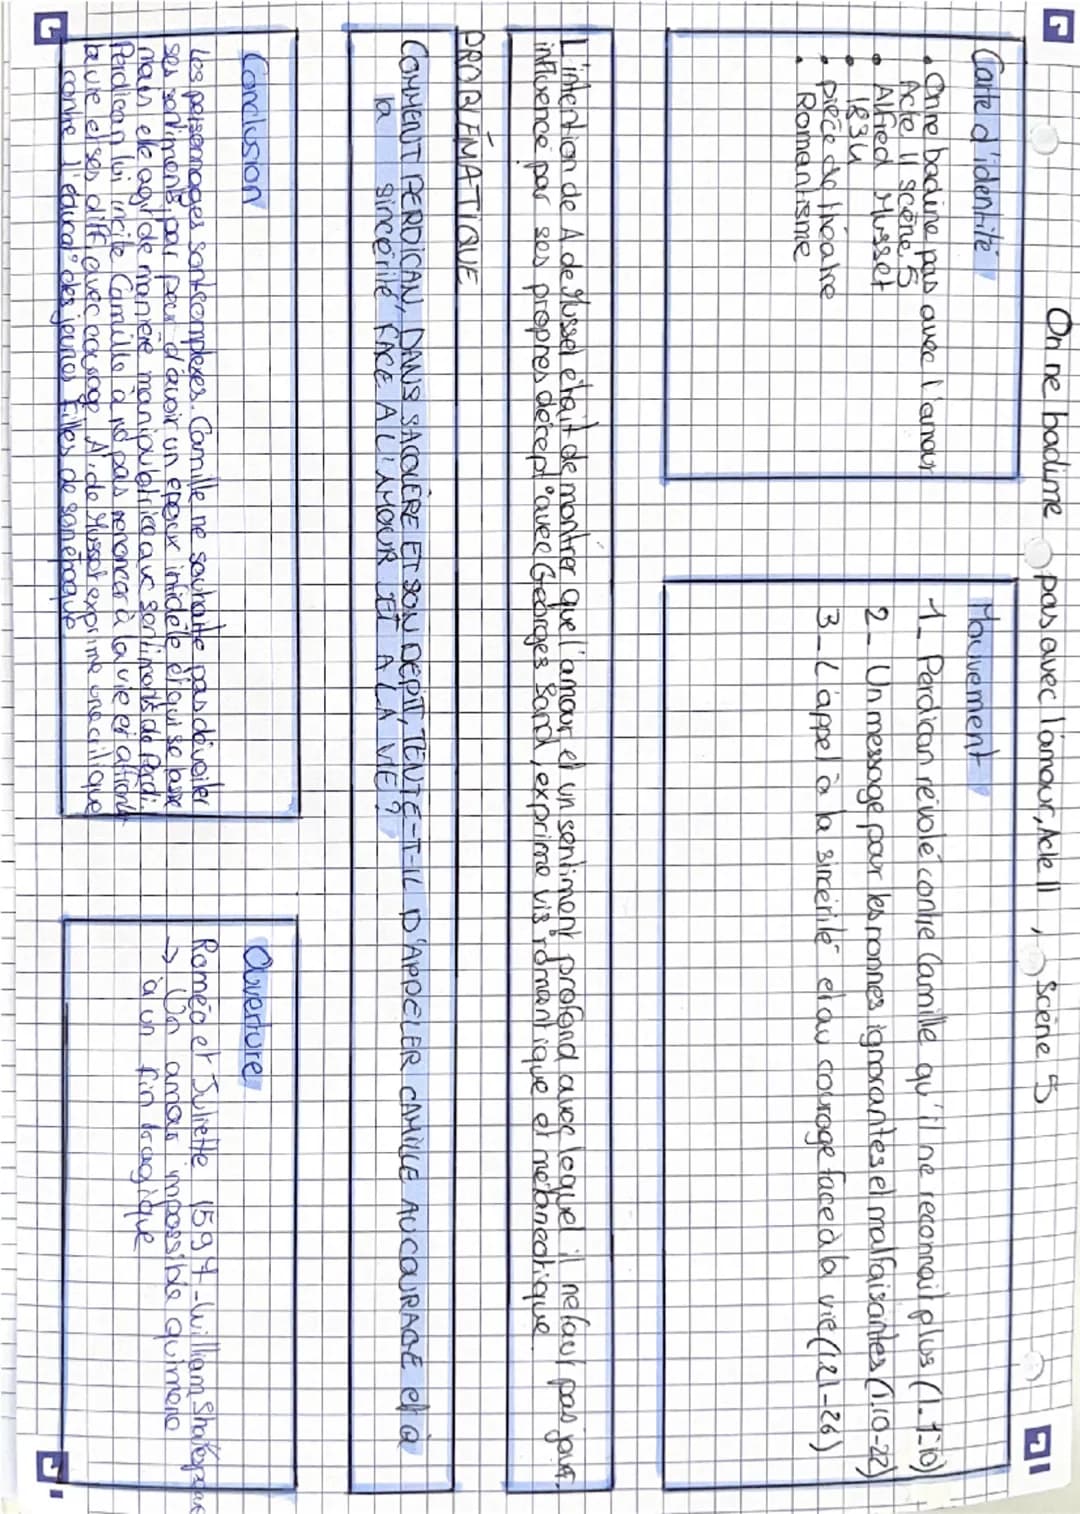 On ne badime pas avec l'amour, Acte II, Scène 5
Carte d'identité
• On ne badine pas avec l'amour
Acte II scène 5
• Alfred Musset
• 1834
• pièce de théatre
• Romantisme
Mouvement
1_ Perdican révolé contre Camille qu'il ne reconnait plus (l.1-10)
2_ Un message par les nonnes ignorantes et malfaisantes (l.10-22)
3_ L'appel à la sincérité et au courage face à la vie (21-26)
L'intention de A. de Musset était de montrer que l'amour et un sentiment profond avec lequel il ne faut pas jouer,
influencé par ses propres décept° avec Georges Sand, exprime vis° romantique et mélancolique
PROBLÉMATIQUE
COMMENT PERDICAN, DANS SA COLÈRE ET SON DEPIT, TENTE-T-IL D'APPELER CAMILLE AU COURAGE et à
la sincérité FACE A L'AMOUR ET A LA VIE ?
Conclusion
Les personnages sont complexes. Camille ne souhaite pas dévoiler
ses sentiments par peur d'avoir un époux infidèle et qui se lasse
mais elle agit de manière manipulatrice avc sentiments de Perdi.
Perdican lui incite Camille à ne pas renoncer à la vie et affronter
la vie et ses diff. avec courage. A. de Musset exprime une critique
contre l'éducat° des jeunes filles de son époque
Ouverture
Roméo et Juliette 1597 - William Shakespeare
→ Un amour impossible qui mène
à un fin tragique